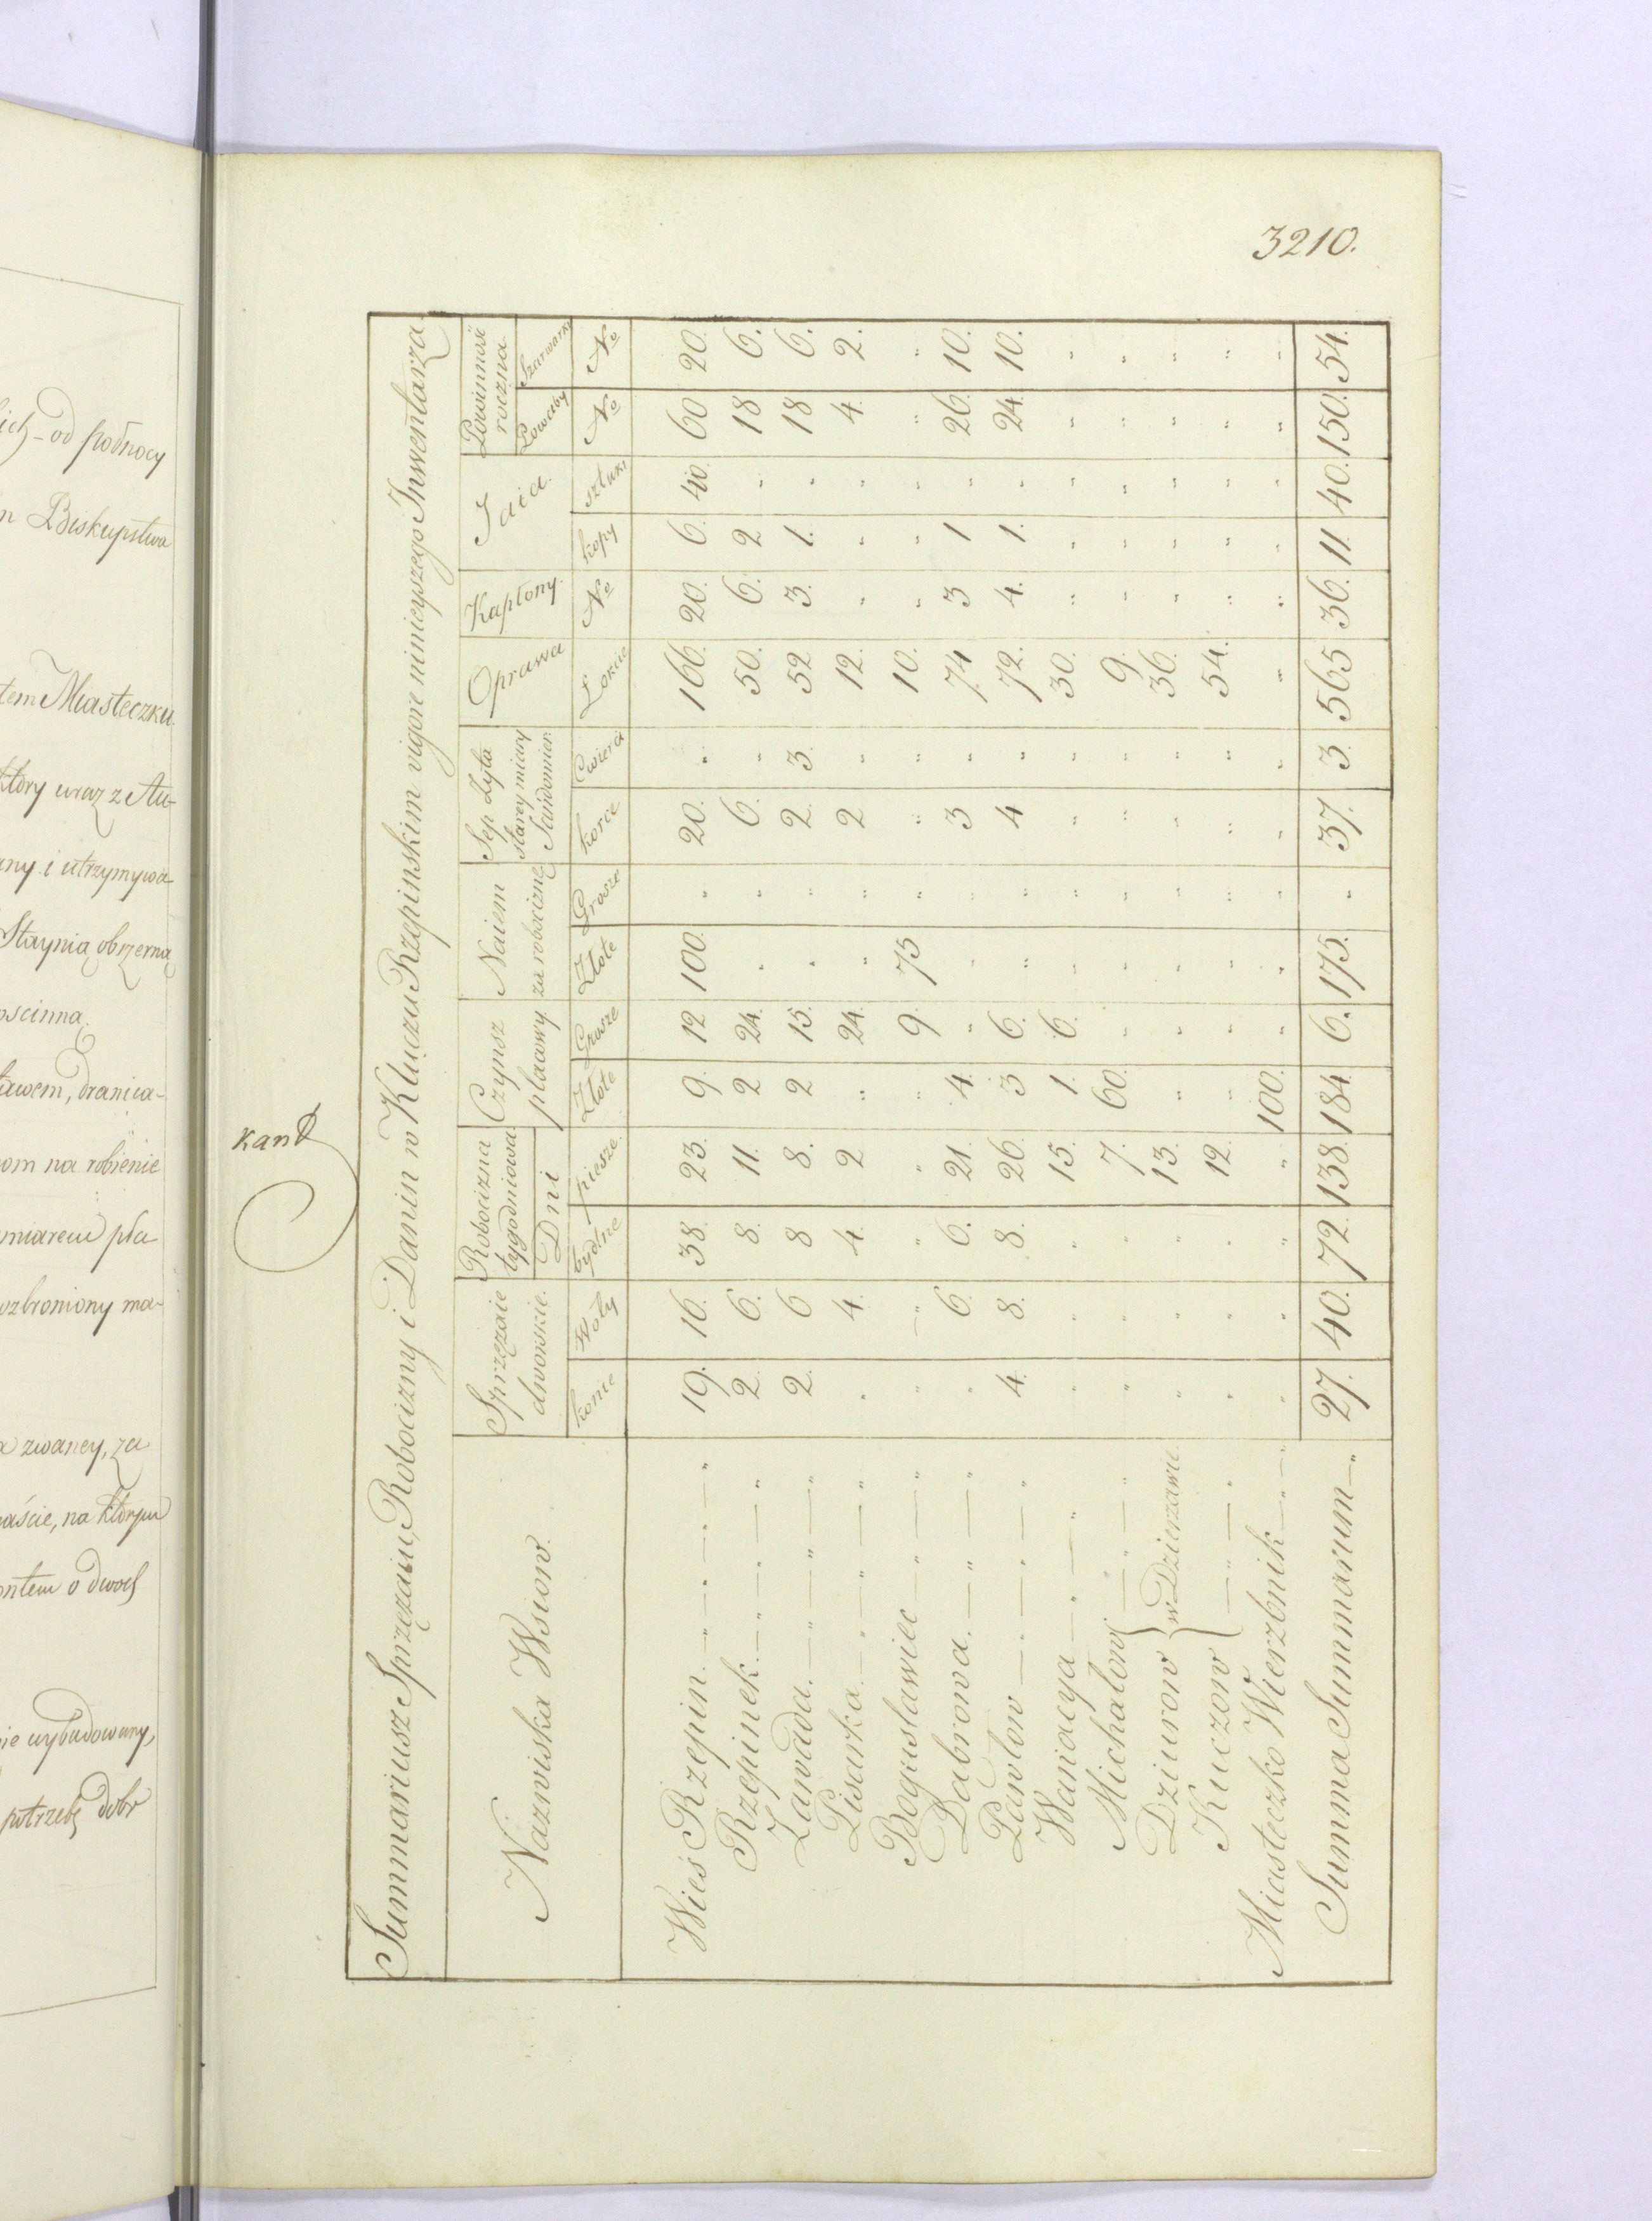 3210.
kand
Summariusz Sprzężaiu, Robocizny i Danin w Kluczu Rzepinskim vigore ninieyszego Inwentarza.
Nazwiska Wsiow. Sprzężaie dworskie. Robocizna tygodniowa Dni Czynsz placowy Naiem za robociznę Sep Żyta starey miary Sandomier. Oprawa Kapłony. Jaia. Powinność roczna
konie Woły bydlne piesze. Złote Grosze Złote Grosze korce Cwierci Łokcie No kopy sztuki Powaby No Szarwarki No
Wieś Rzepin. 19. 16. 38. 23. 9. 12 100. " 20. " 166. 20. 6. 40. 60 20.
Rzepinek. 2. 6. 8. 11. 2 24. " " 6. " 50. 6. 2 " 18 6.
Zawada. 2. 6 8 8. 2 15. " " 2. 3. 52 3. 1. " 18 6.
Pisarka. " 4. 4. 2 " 24. " " 2 " 12. " " " 4. 2.
Bogusławiec " " " " " 9. 75 " " " 10. " " " " "
Dąbrowa. " 6. 6. 21. 4. " " " 3 " 74 3 1 " 26. 10.
Pawłow 4. 8. 8. 26. 3 6. " " 4 " 72. 4. 1. " 24. 10.
Waniacya " " " 15. 1. 6. " " " " 30. " " " " "
Michałow " " " 7. 60. " " " " " 9. " " " " "
Dziurow } w Dzierzawie " " " 13. " " " " " " 36. " " " " "
Kuczow " " " 12. " " " " " " 54. " " " " "
Miasteczko Wierzbnik " " " " 100. " " " " " " " " " " "
Summa Summarum 27. 40. 72. 138. 184. 6. 175. " 37. 3. 565 36. 11. 40. 150. 54.
od północy
Biskupstwa
tem Miasteczku
który wraz z Au-
any i utrzymywa-
Staynią obrzerną
dranica-
om na robienie
pła-
ozbroniony ma-
a zwaney, za
na którym
o dwoch
ie wybudowany,
potrzebę dobr